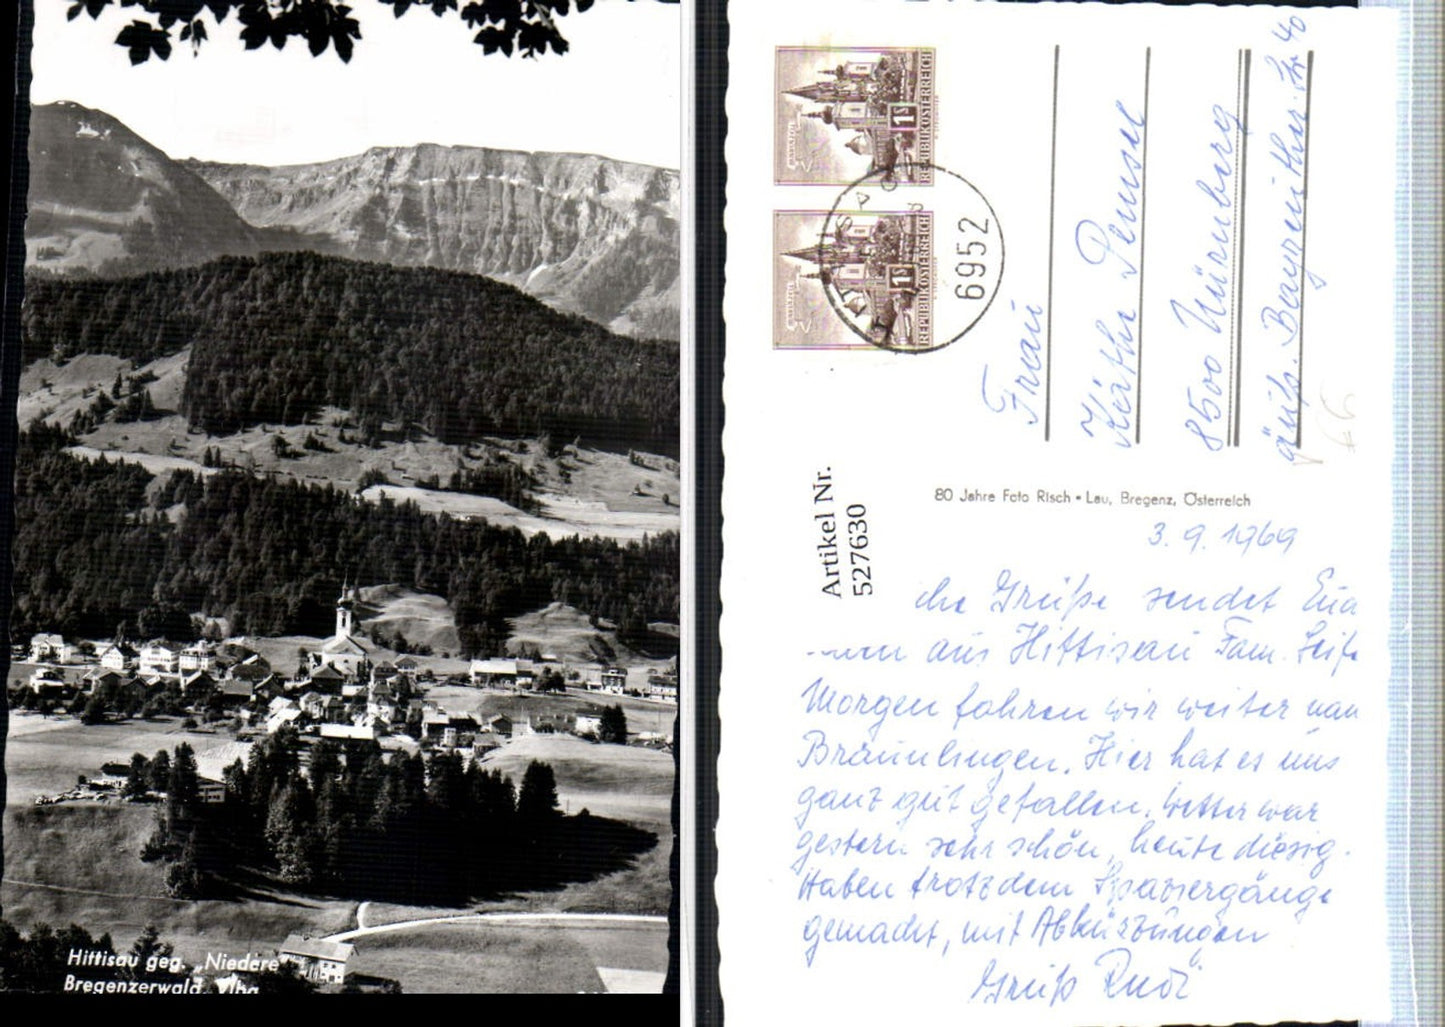 Hittisau geg. „Niedere"
Bregenzerwald, Vlbg.
MARIAZELL
1S
REPUBLIK ÖSTERREICH
MARIAZELL
1S
REPUBLIK ÖSTERREICH
6952
Frau
Käthe Pemsel
8500 Nürnberg
äuß. Bayreuther Str. 40
Artikel Nr.
527630
80 Jahre Foto Risch • Lau, Bregenz, Österreich
3. 9. 1969
Grüße sendet Eva
aus Hittisau Fam.
Morgen fahren wir weiter nach
Bräunlingen. Hier hat es uns
ganz gut gefallen. Wetter war
gestern sehr schön, heute diesig.
Haben trotzdem Spaziergänge
gemacht, mit Abkürzungen
Gruß Rudi